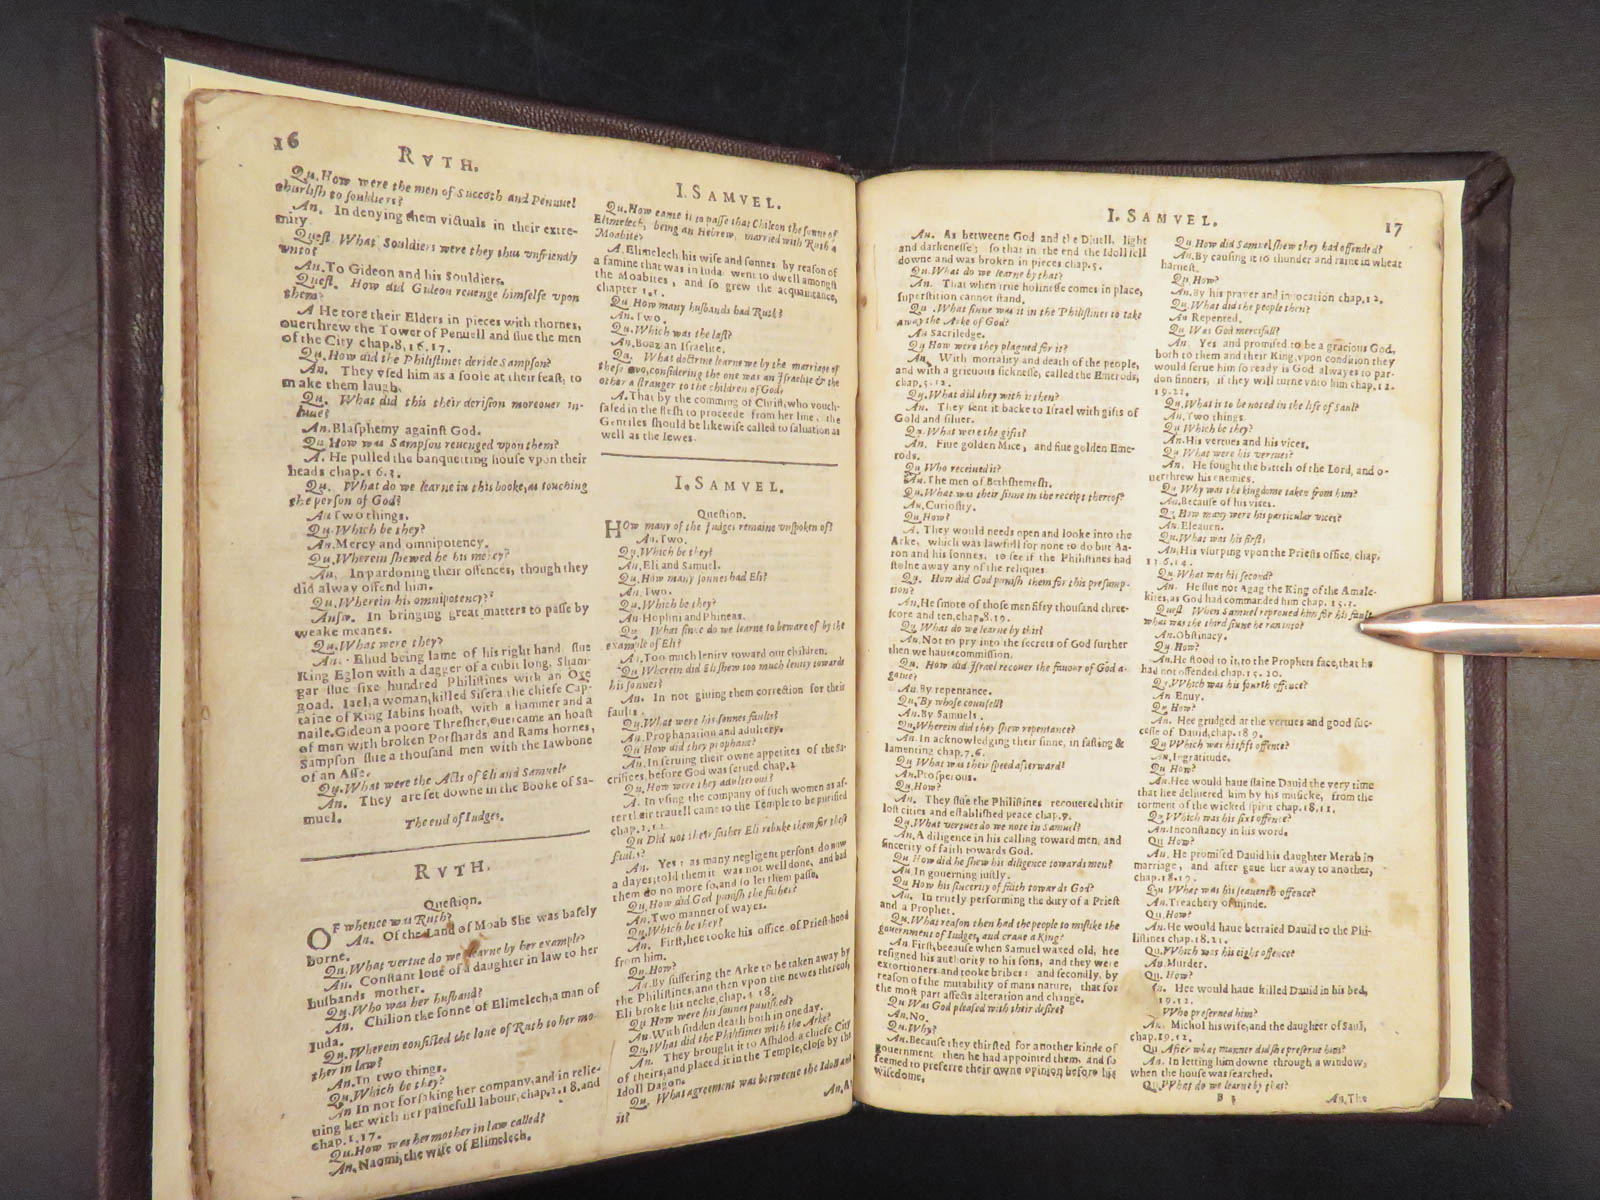 16
RVTH.
Qu. How were the men of Succoth and Penuuel
churlish to souldiers?
An. In denying them victuals in their extre-
mity.
Quest. What Souldiers were they thus vnfriendly
vnto?
An. To Gideon and his Souldiers.
Quest. How did Gideon reuenge himselfe vpon
them?
A He tore their Elders in pieces with thornes,
ouerthrew the Tower of Penuell and slue the men
of the City chap.8,16.17.
Qu. How did the Philistines deride Sampson?
An. They vsed him as a foole at their feast, to
make them laugh.
Qu. What did this their derision moreouer in-
An. Blasphemy against God.
Qu. How was Sampson reuenged vpon them?
A. He pulled the banquetting house vpon their
heads chap.16.3.
Qu. What do we learne in this booke, as touching
the person of God?
An Two things.
Qu. Which be they?
An. Mercy and omnipotency.
Qu. Wherein shewed he his mercy?
An. In pardoning their offences, though they
did alway offend him.
Qu. Wherein his omnipotency?
Answ. In bringing great matters to passe by
weake meanes.
Qu. What were they?
An. Ehud being lame of his right hand slue
King Eglon with a dagger of a cubit long, Sham-
gar slue sixe hundred Philistines with an Oxe
goad. Iael, a woman, killed Sisera the chiefe Cap-
taine of King Iabins hoast, with a hammer and a
naile. Gideon a poore Thresher, ouercame an hoast
of men with broken Potshards and Rams hornes,
Sampson slue a thousand men with the Iawbone
of an Asse.
Qu. What were the Acts of Eli and Samuel?
An. They are set downe in the Booke of Sa-
muel.
The end of Iudges.
RVTH.
Question.
OF whence was Ruth?
An. Of the Land of Moab She was basely
borne.
Qu. What vertue do we learne by her example?
An. Constant loue of a daughter in law to her
husbands mother.
Qu. Who was her husband?
An. Chilion the sonne of Elimelech, a man of
Iuda.
Qu. Wherein consisted the loue of Ruth to her mo-
ther in law?
An. In two things.
Qu. Which be they?
An In not forsaking her company, and in relie-
uing her with her painefull labour, chap.1.18. and
chap.1,17.
Qu. How was her mother in law called?
An. Naomi, the wife of Elimelech.
I. SAMVEL.
Qu. How came it to passe that Chileon the sonne of
Elimelech, being an Hebrew, married with Ruth a
Moabite?
A. Elimelech, his wife and sonnes by reason of
a famine that was in Iuda went to dwell amongst
the Moabites, and so grew the acquaintance,
chapter 1.1.
Qu. How many husbands had Ruth?
An. Two.
Qu. Which was the last?
An. Boaz an Israelite.
Qu. What doctrine learne we by the marriage of
these two, considering the one was an Israelite & the
other a stranger to the children of God?
A. That by the comming of Christ, who vouch-
safed in the flesh to proceede from her line, the
Gentiles should be likewise called to saluation as
well as the Iewes.
I. SAMVEL.
Question.
HOw many of the Judges remaine vnspoken of?
An. Two.
Qu. Which be they?
An. Eli and Samuel.
Qu. How many sonnes had Eli?
An. Two.
Qu. Which be they?
An. Hophni and Phineas.
Qu. What sinne do we learne to beware of by the
example of Eli?
An, Too much lenity toward our children.
Qu Wherein did Eli shew too much lenity towards
his sonnes?
An. In not giving them correction for their
faults.
Qu. What were his sonnes faults?
An. Prophanation and adultery.
Qu How did they prophane?
An. In seruing their owne appetites of the Sa-
crifices, before God was serued chap.2
Qu. How were they adulterous?
A. In vsing the company of such women as af-
ter their trauell came to the Temple to be purified
chap.
Qu Did not their father Eli rebuke them for these
An. Yes: as many negligent persons do now
a dayes; told them it was not well done, and bad
them do no more so, and so let them passe.
Qu. How did God punish the father?
An. Two manner of wayes.
Qu. Which be they?
An. First, hee tooke his office of Priest-hood
from him.
Qu. How?
An. By suffering the Arke to be taken away by
the Philistines, and then vpon the newes thereof,
Eli broke his necke, chap.4 18.
Qu How were his sonnes punished?
An. With sudden death both in one day.
Qu. What did the Philistines with the Arke?
An. They brought it to Ashdod a chiefe City
of theirs, and placed it in the Temple, close by the
Idoll Dagon.
Qu. What agreement was betweene the Idoll and
it?
An. As
I. SAMVEL.
17
An. As betweene God and the Diuell, light
and darkenesse; so that in the end the Idoll fell
downe and was broken in pieces chap.5.
Qu. What do we learne by that?
An. That when true holinesse comes in place,
superstition cannot stand.
Qu. What sinne was it in the Philistines to take
away the Arke of God?
An Sacriledge.
Qy How were they plagued for it?
An. With mortality and death of the people,
and with a grieuous sicknesse, called the Emerods,
chap.5.12.
Qy. What did they with it then?
An. They sent it backe to Israel with gifts of
Gold and siluer.
Qu. What were the gifts?
An. Fiue golden Mice, and fiue golden Eme-
rods.
Qu Who receiued it?
An. The men of Bethshemesh.
Qu. What was their sinne in the receipt thereof?
An. Curiosity.
Qu. How?
A. They would needs open and looke into the
Arke, which was lawfull for none to do but Aa-
ron and his sonnes, to see if the Philistines had
stolne away any of the reliques.
Qy. How did God punish them for this presump-
tion?
An. He smote of those men fifty thousand three-
score and ten, chap.8.19.
Qu. What do we learne by this?
An. Not to pry into the secrets of God further
then we haue commission.
Qu. How did Israel recouer the fauour of God a-
gaine?
An. By repentance.
Qu, By whose counsell?
An. By Samuels.
Qu. Wherein did they shew repentance?
An. In acknowledging their sinne, in fasting &
lamenting chap.7.6.
Qu What was their speed afterward?
An. Prosperous.
Qu. How?
An. They slue the Philistines recouered their
lost cities and established peace chap.9.
Qu. What vertues do we note in Samuel?
An, A diligence in his calling toward men, and
sincerity of faith towards God.
Qu How did he shew his diligence towards men?
An. In gouerning iustly.
Qu How his sincerity of faith towards God?
An. In truely performing the duty of a Priest
and a Prophet.
Qu. What reason then had the people to mislike the
gouernment of Iudges, and craue a King?
An. First, because when Samuel waxed old, hee
resigned his authority to his sons, and they were
extortioners and tooke bribes: and secondly, by
reason of the mutability of mans nature, that for
the most part affects alteration and change.
Qu Was God pleased with their desire?
An. No.
Qu. Why?
An. Because they thirsted for another kinde of
gouernment then he had appointed them, and so
seemed to preferre their owne opinion before his
wisedome.
Qu How did Samuel shew they had offended?
An. By causing it to thunder and raine in wheat
haruest.
Qu. How?
An. By his prayer and inuocation chap.12.
Qu. What did the people then?
An Repented.
Qu Was God mercifull?
An. Yes and promised to be a gracious God,
both to them and their King, vpon condition they
would serue him so ready is God alwayes to par-
don sinners, if they will turne vnto him chap.12.
19.22.
Qu. What is to be noted in the life of Saul?
An. Two things.
Qu Which be they?
An. His vertues and his vices.
Qu What were his vertues?
An. He fought the battels of the Lord, and o-
uerthrew his enemies.
Qu Why was the kingdome taken from him?
An. Because of his vices.
Qu How many were his particular vices?
An. Eleauen.
Qu. What was his first?
An, His vsurping vpon the Priests office, chap.
Qu. What was his second?
An. He slue not Agag the King of the Amale-
kites, as God had commanded him chap. 15.1.
Quest. When Samuel reproued him for his fault,
what was the third sinne he ran into?
An. Obstinacy.
Qu. How?
An. He stood to it, to the Prophets face, that he
had not offended chap.15.20.
Qu. Which was his fourth offence?
An Enuy.
Qu How?
An. Hee grudged at the vertues and good suc-
cesse of Dauid, chap.18 9.
Qu Which was his fift offence?
An, Ingratitude.
Qu How?
An. Hee would haue slaine Dauid the very time
that hee deliuered him by his musicke, from the
torment of the wicked spirit chap.18.11.
Qu. Which was his sixt offence?
An. Inconstancy in his word.
Qu How?
An. He promised Dauid his daughter Merab in
marriage, and after gaue her away to another,
chap.18.19.
Qu Which was his seauenth offence?
An. Treachery of minde.
Qu. How?
An. He would haue betraied Dauid to the Phi-
listines chap.18.21.
Qu. Which was his eight offence?
An. Murder.
Qu. How?
An. Hee would haue killed Dauid in his bed,
19.12.
Who preserued him?
An. Michol his wife, and the daughter of Saul,
chap.19.12.
Qu After what manner did she preserue him?
An. In letting him downe through a window,
when the house was searched.
Qu. What do we learne by that?
B 3
An. The